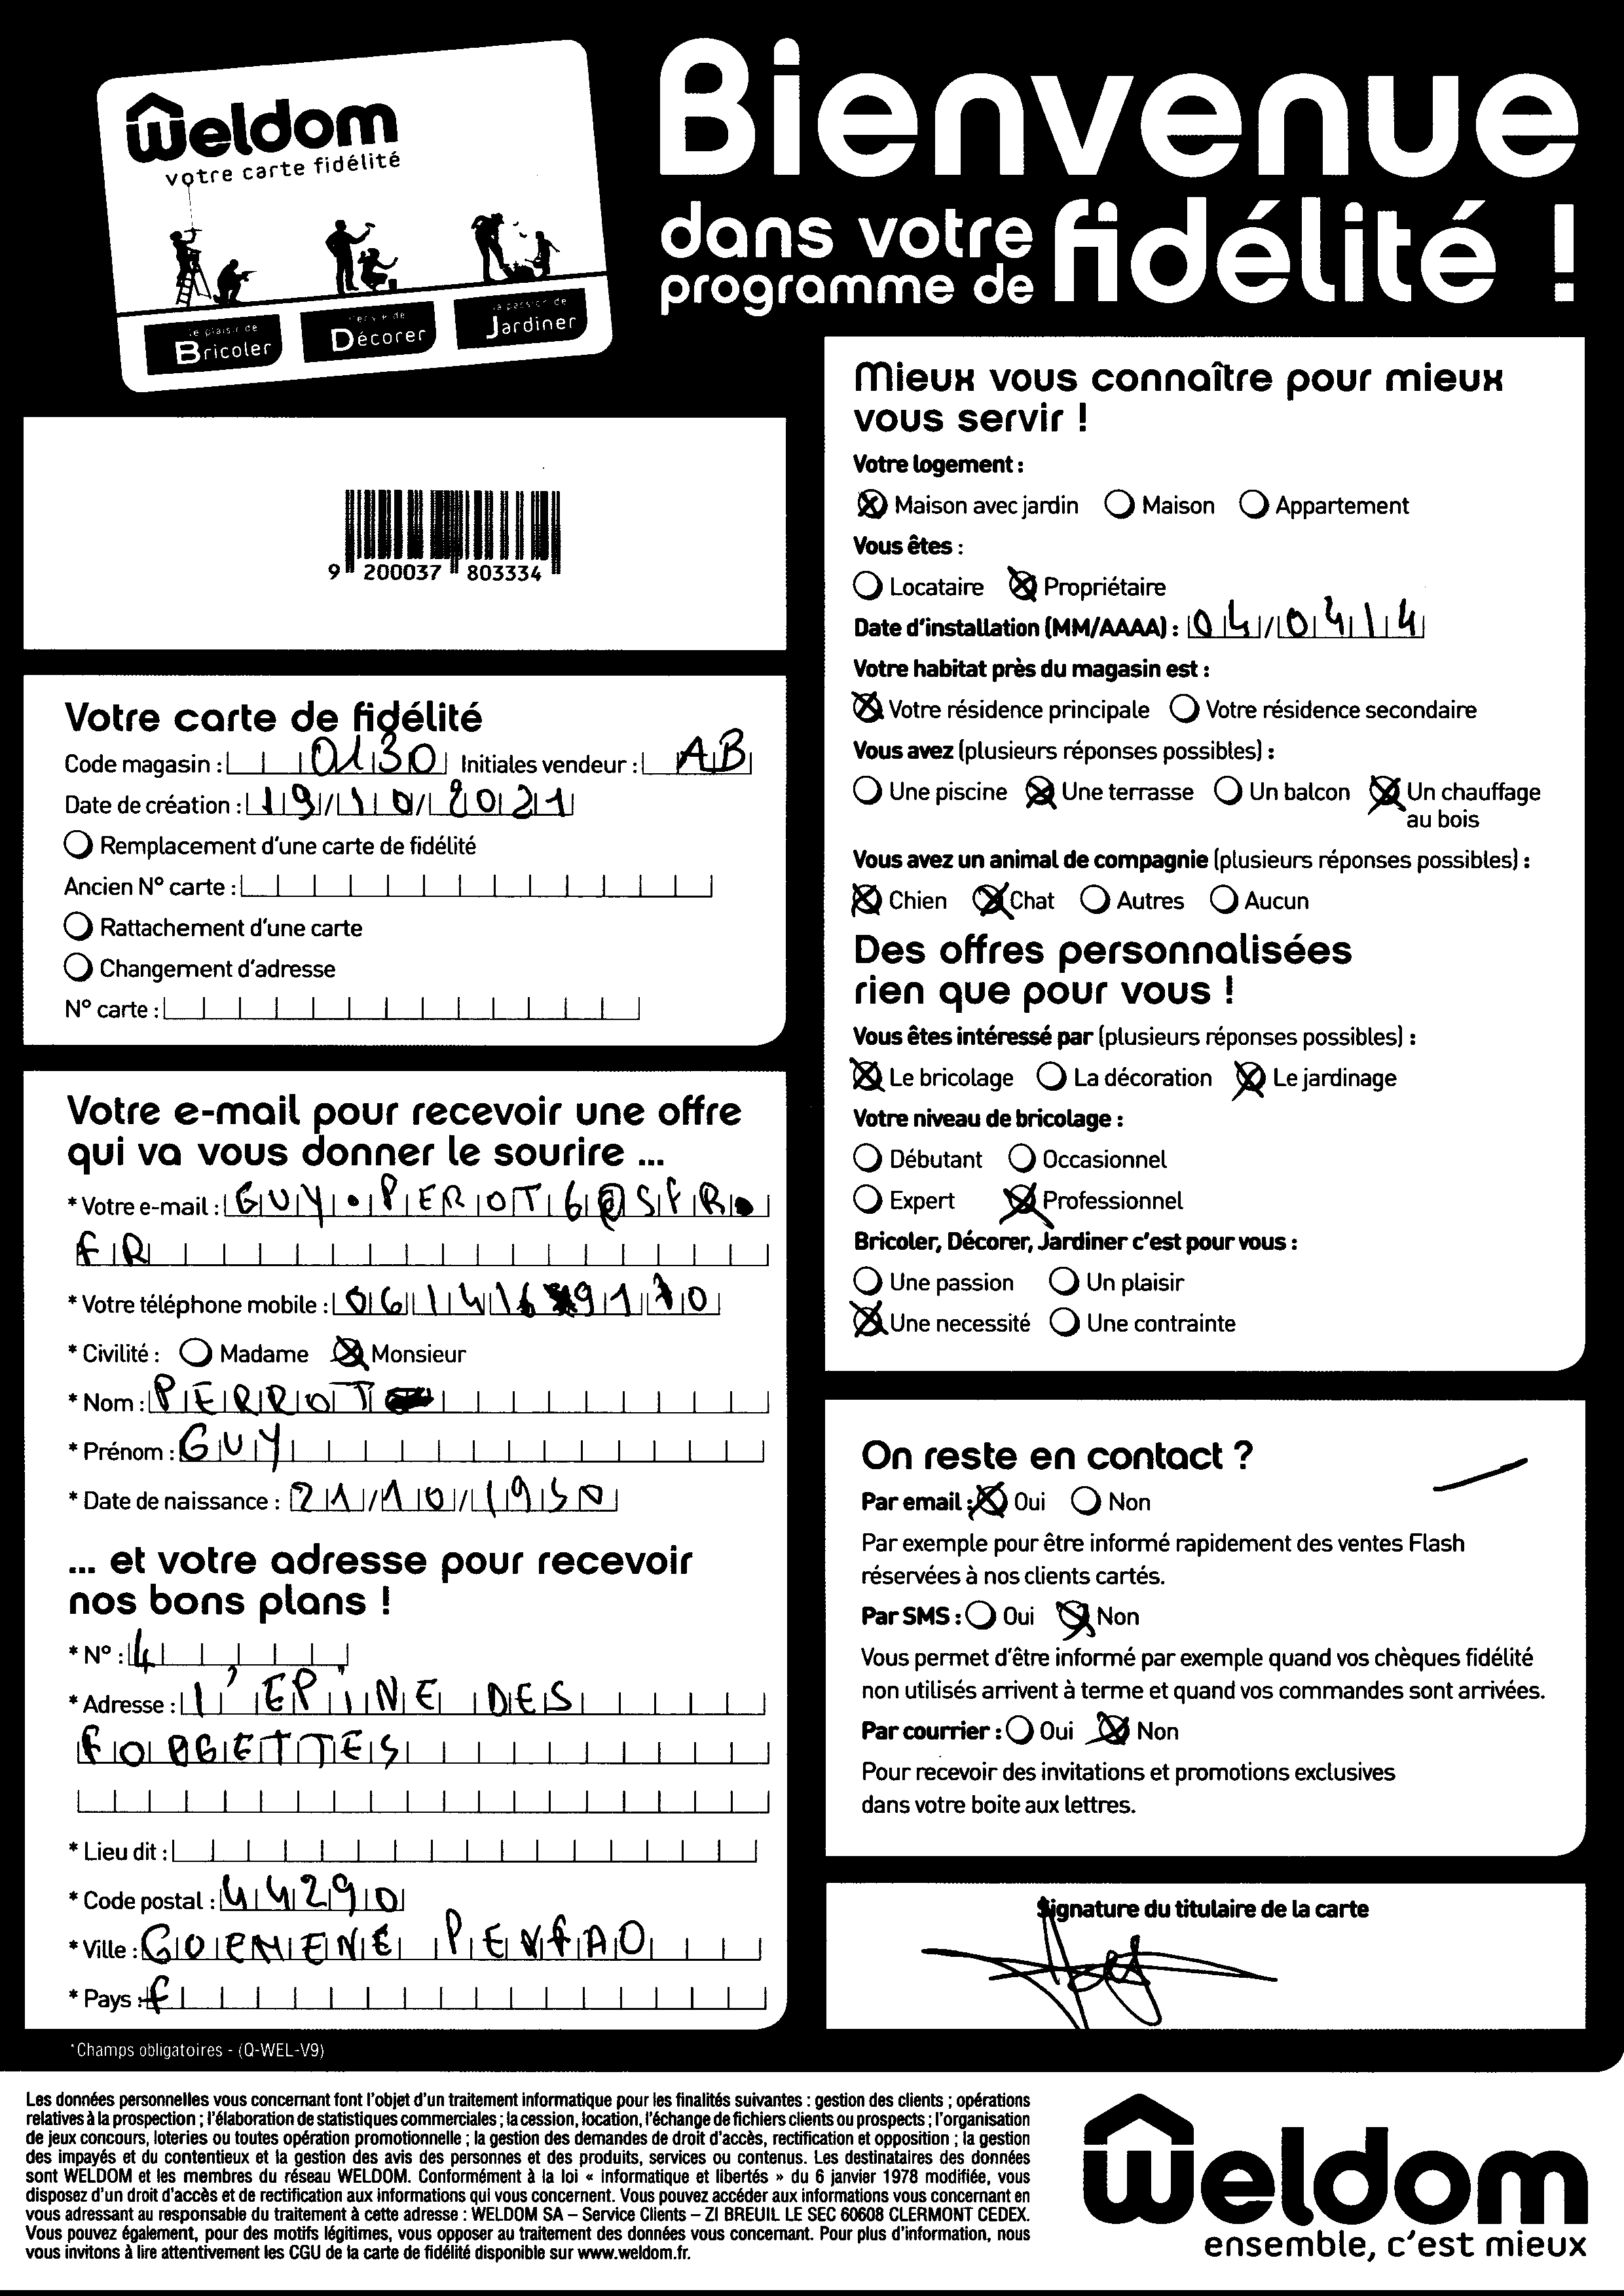 Weldom
votre carte fidélité
le plaisir de
Bricoler
l'envie de
Décorer
la passion de
Jardiner
Bienvenue
dans votre
programme de fidélité !
9 200037 803334
Votre carte de fidélité
Code magasin : 0130 Initiales vendeur : AB
Date de création : 19/10/2021
Remplacement d'une carte de fidélité
Ancien N° carte :
Rattachement d'une carte
Changement d'adresse
N° carte :
Votre e-mail pour recevoir une offre
qui va vous donner le sourire ...
* Votre e-mail : GUY.PEROT6@SFR.
FR
* Votre téléphone mobile :
* Civilité : Madame Monsieur
* Nom : PERROT
* Prénom : GUY
* Date de naissance : 21/10/1950
... et votre adresse pour recevoir
nos bons plans !
* N° : 4
* Adresse : l'EPINE DES
FORGETTES
* Lieu dit :
* Code postal : 44290
* Ville : GUEMENÉ PENFAO
* Pays : F
*Champs obligatoires - (Q-WEL-V9)
Mieux vous connaître pour mieux
vous servir !
Votre logement :
Maison avec jardin Maison Appartement
Vous êtes :
Locataire Propriétaire
Date d'installation (MM/AAAA) : 04/0414
Votre habitat près du magasin est :
Votre résidence principale Votre résidence secondaire
Vous avez (plusieurs réponses possibles) :
Une piscine Une terrasse Un balcon Un chauffage
au bois
Vous avez un animal de compagnie (plusieurs réponses possibles) :
Chien Chat Autres Aucun
Des offres personnalisées
rien que pour vous !
Vous êtes intéressé par (plusieurs réponses possibles) :
Le bricolage La décoration Le jardinage
Votre niveau de bricolage :
Débutant Occasionnel
Expert Professionnel
Bricoler, Décorer, Jardiner c'est pour vous :
Une passion Un plaisir
Une necessité Une contrainte
On reste en contact ?
Par email : Oui Non
Par exemple pour être informé rapidement des ventes Flash
réservées à nos clients cartés.
Par SMS : Oui Non
Vous permet d'être informé par exemple quand vos chèques fidélité
non utilisés arrivent à terme et quand vos commandes sont arrivées.
Par courrier : Oui Non
Pour recevoir des invitations et promotions exclusives
dans votre boite aux lettres.
Signature du titulaire de la carte
Les données personnelles vous concernant font l'objet d'un traitement informatique pour les finalités suivantes : gestion des clients ; opérations
relatives à la prospection ; l'élaboration de statistiques commerciales ; la cession, location, l'échange de fichiers clients ou prospects ; l'organisation
de jeux concours, loteries ou toutes opération promotionnelle ; la gestion des demandes de droit d'accès, rectification et opposition ; la gestion
des impayés et du contentieux et la gestion des avis des personnes et des produits, services ou contenus. Les destinataires des données
sont WELDOM et les membres du réseau WELDOM. Conformément à la loi « informatique et libertés » du 6 janvier 1978 modifiée, vous
disposez d'un droit d'accès et de rectification aux informations qui vous concernent. Vous pouvez accéder aux informations vous concernant en
vous adressant au responsable du traitement à cette adresse : WELDOM SA – Service Clients – ZI BREUIL LE SEC 60608 CLERMONT CEDEX.
Vous pouvez également, pour des motifs légitimes, vous opposer au traitement des données vous concernant. Pour plus d'information, nous
vous invitons à lire attentivement les CGU de la carte de fidélité disponible sur www.weldom.fr.
Weldom
ensemble, c'est mieux